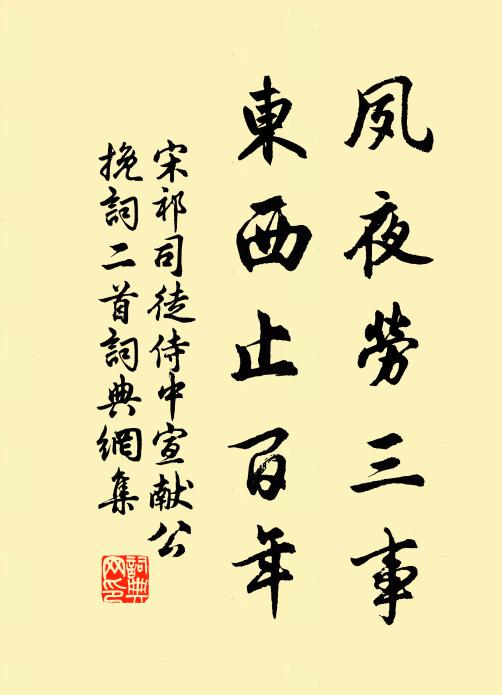 夙夜勞三事
東西止百年
宋祁司徒侍中宣献公
挽詞二首詞典網集
詞典
网印